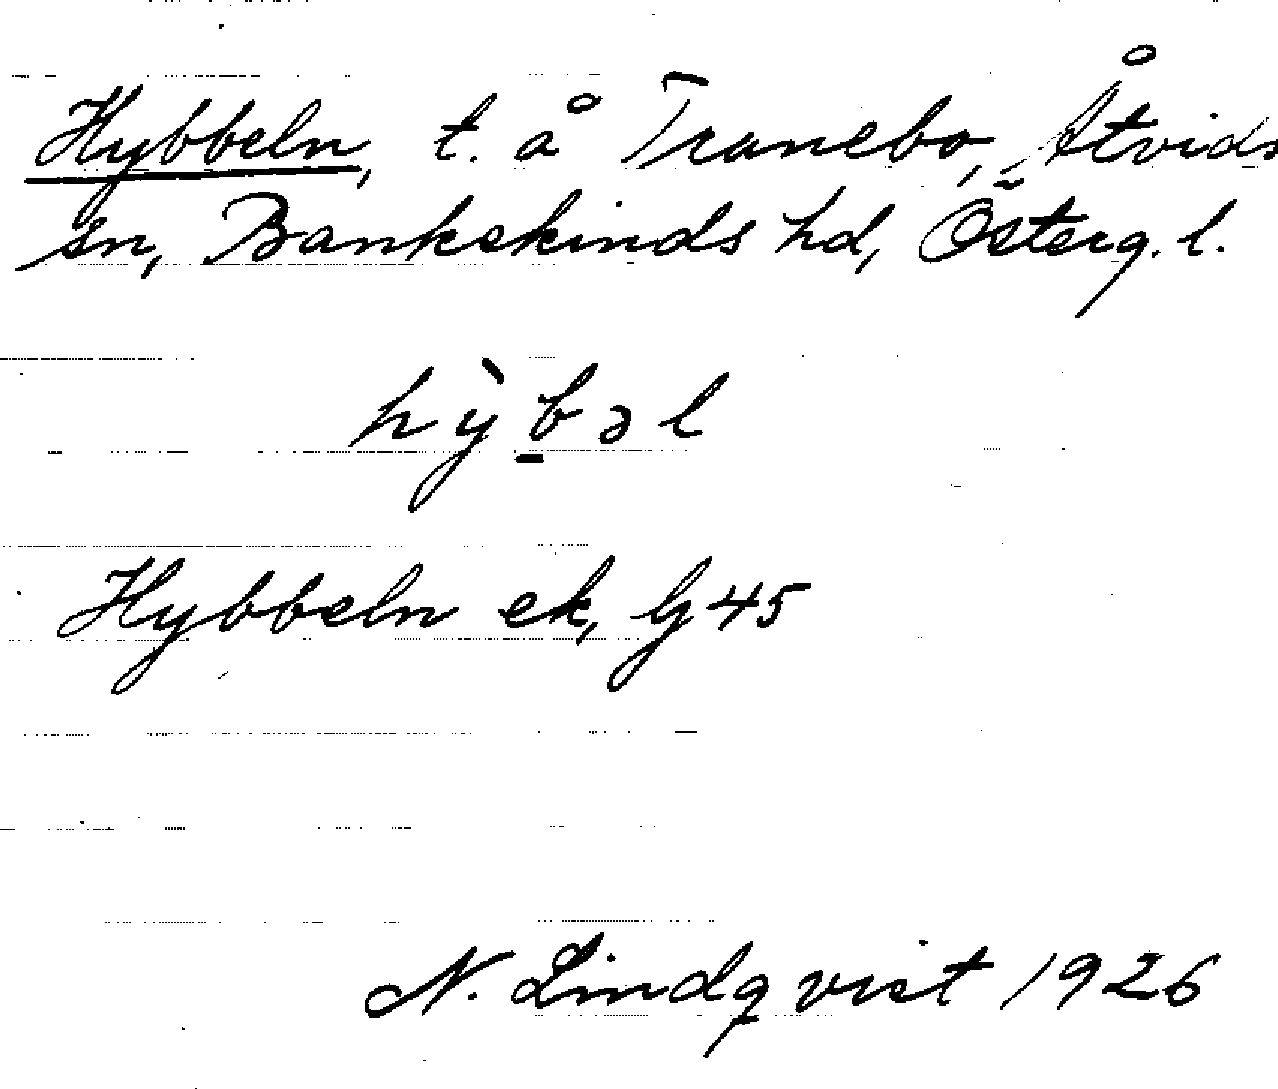 Hybbeln, t. å Tranebo, Åtvids
sn, Bankekinds hd, Österg. l.
hỳbəl
Hybbeln ek, bl 45
N. Lindqvist 1926